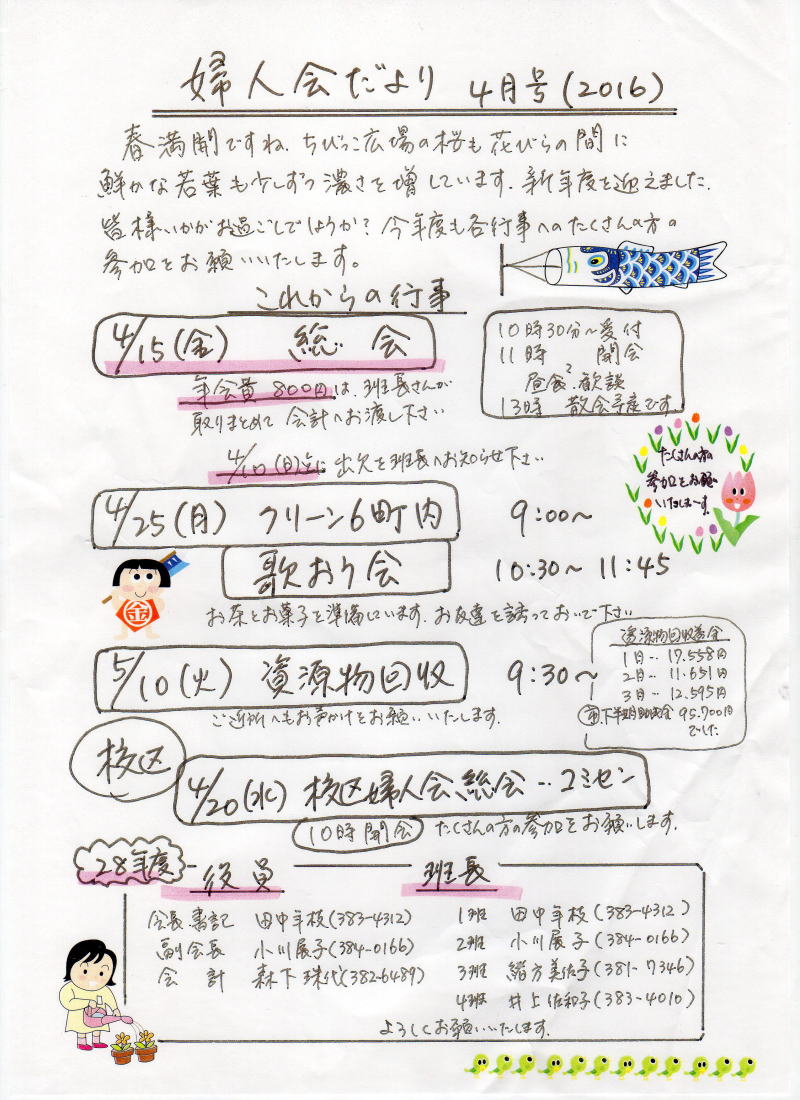 婦人会だより 4月号(2016)
春満開ですね。ちびっこ広場の桜も花びらの間に
鮮かな若葉も少しずつ濃さを増しています。新年度を迎えました。
皆様いかがお過ごしでしょうか？今年度も各行事へのたくさんの方の
参加をお願いいたします。
これからの行事
4/15(金) 総会
10時30分～受付
11時 開会
昼食、歓談
13時 散会予定です
年会費 800円は、班長さんが
取りまとめて会計へお渡し下さい
4/10(日)迄に出欠を班長へお知らせ下さい
たくさんの方の
参加をお願い
いたしまーす。
4/25(月) クリーン6町内 9:00～
歌おう会 10:30～11:45
金
お茶とお菓子を準備しています。お友達を誘っておいで下さい
5/10(火) 資源物回収 9:30～
ご近所へもお声かけをお願いいたします。
資源物回収益金
1日‥17.558円
2日‥11.651円
3日‥12.595円
市下半期助成金 95.700円
でした
校区
4/20(水) 校区婦人会総会‥コミセン
10時開会 たくさんの方の参加をお願いします。
28年度
役員
会長 書記 田中年枝(383-4312)
副会長 小川展子(384-0166)
会計 森下珠代(382-6489)
班長
1班 田中年枝(383-4312)
2班 小川展子(384-0166)
3班 緒方美佐子(381-7346)
4班 井上佐和子(383-4010)
よろしくお願いいたします。